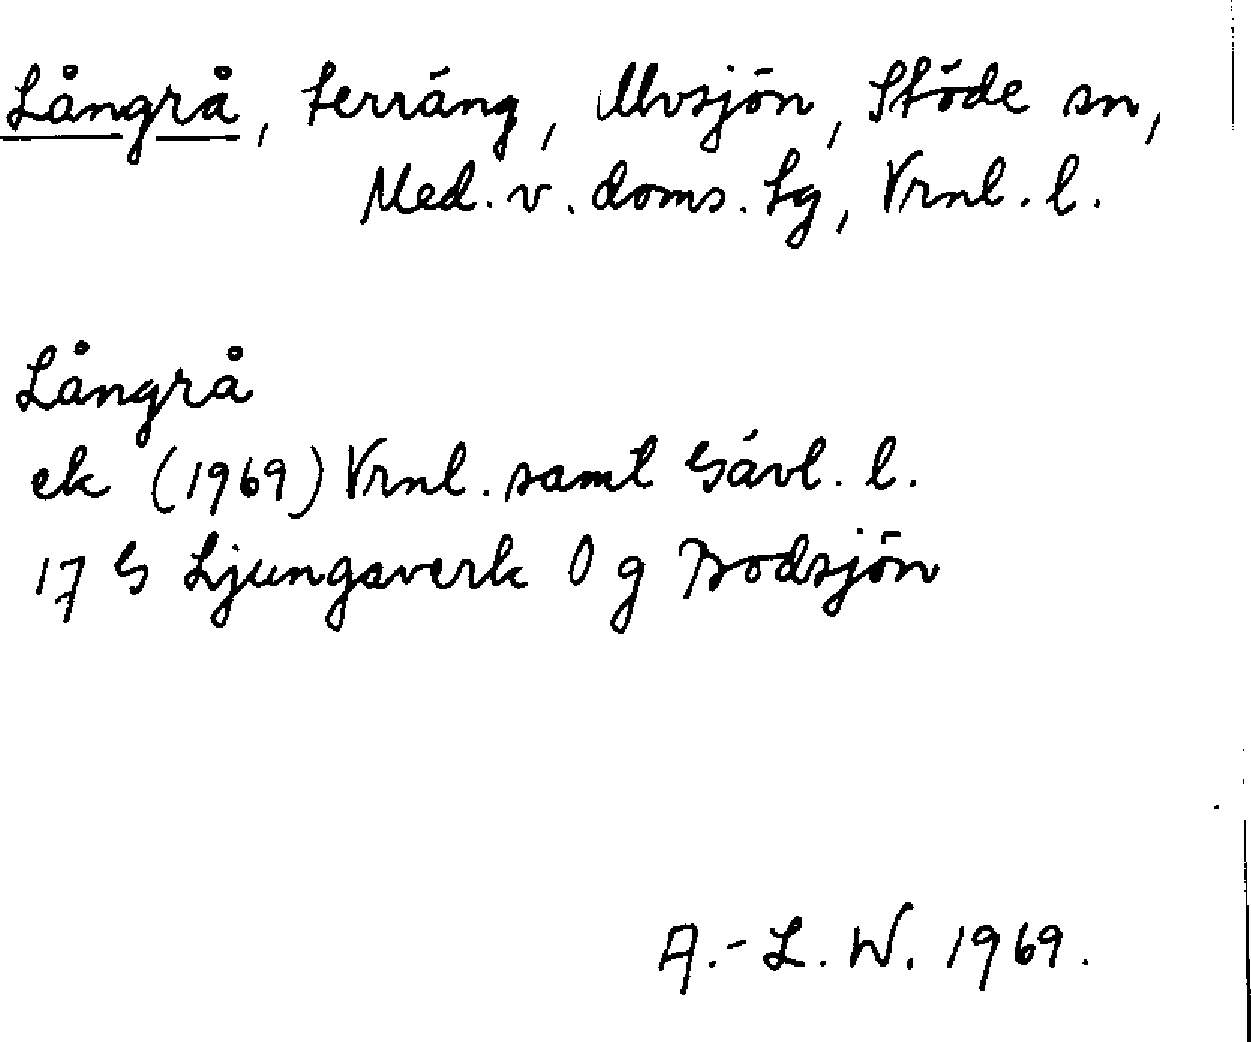 Långrå, terräng, Ulvsjön, Stöde sn,
Med. v. doms. tg, Vrnl. l.
Långrå
ek (1969) Vrnl. samt Gävl. l.
17 G Ljungaverk 0 g Bodsjön
A.-L. W. 1969.